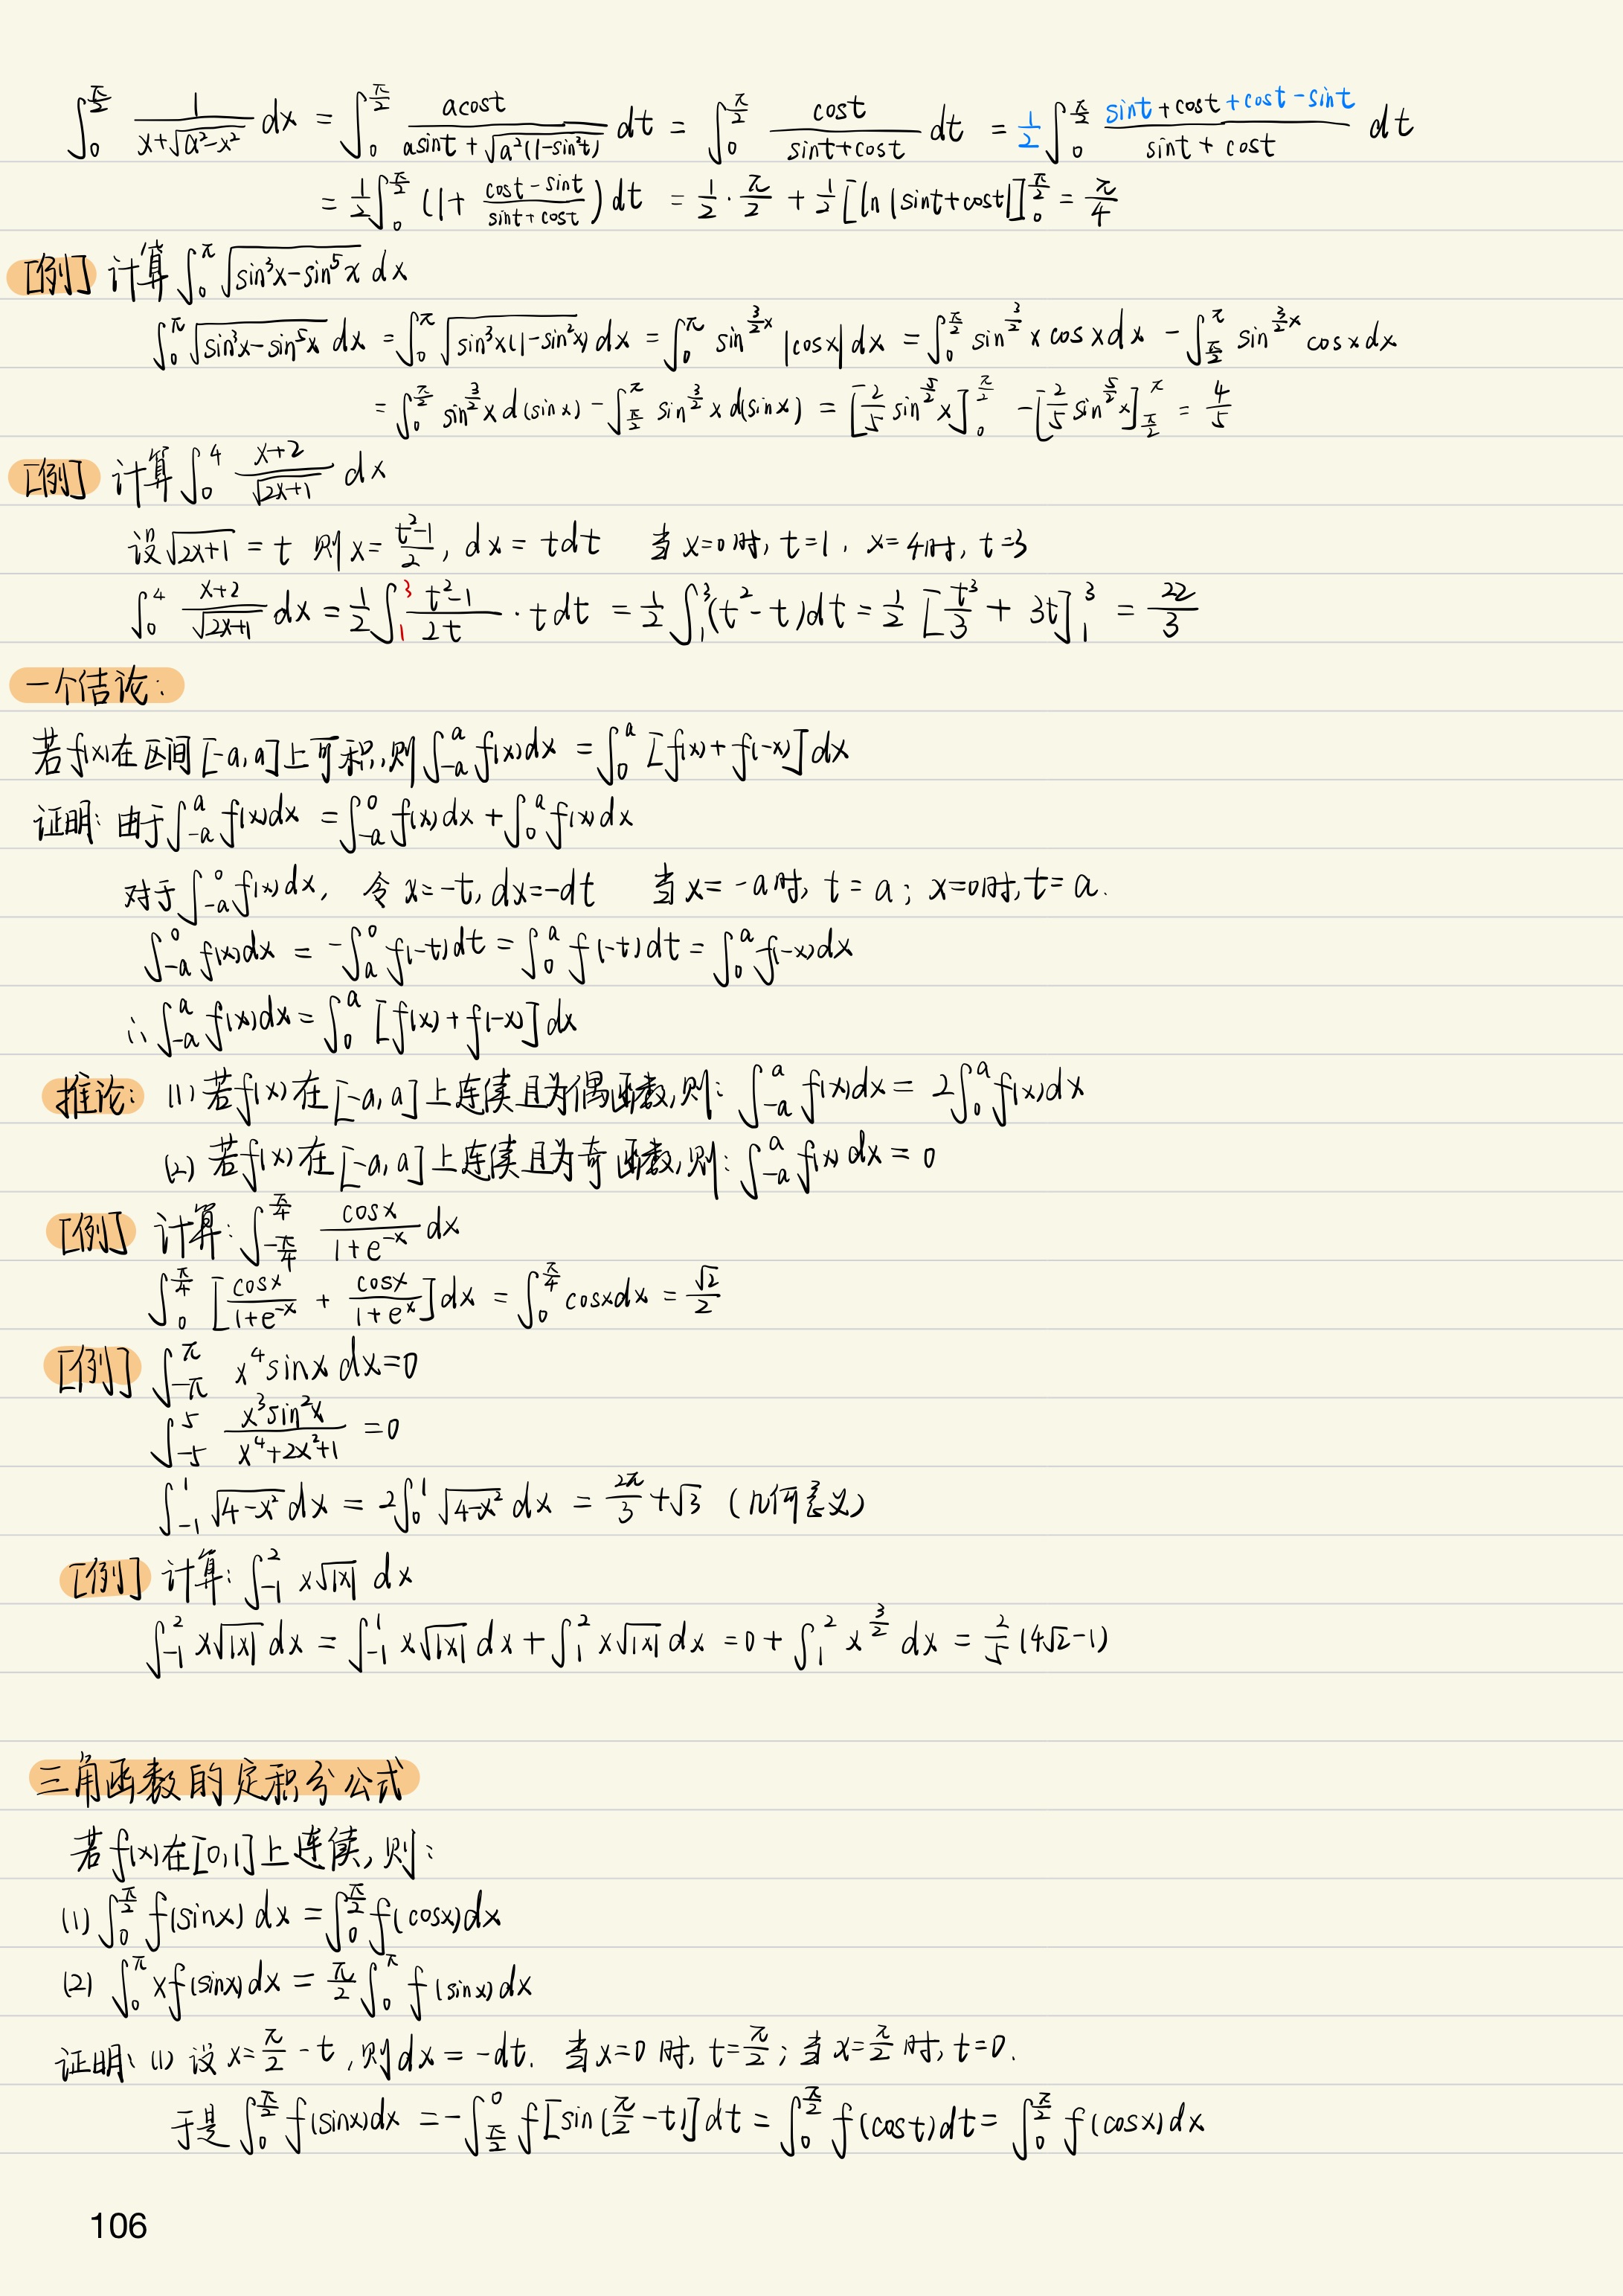 ∫₀^{π/2} 1/(x+√(a²-x²)) dx = ∫₀^{π/2} acost/(asint+√(a²(1-sin²t))) dt = ∫₀^{π/2} cost/(sint+cost) dt = 1/2 ∫₀^{π/2} (sint+cost+cost-sint)/(sint+cost) dt
= 1/2 ∫₀^{π/2} (1+ (cost-sint)/(sint+cost)) dt = 1/2 · π/2 + 1/2 [ln|sint+cost|]₀^{π/2} = π/4
[例] 计算 ∫₀^π √(sin³x-sin⁵x) dx
∫₀^π √(sin³x-sin⁵x) dx = ∫₀^π √(sin³x(1-sin²x)) dx = ∫₀^π sin^{3/2}x |cosx| dx = ∫₀^{π/2} sin^{3/2}x cosxdx - ∫_{π/2}^π sin^{3/2}x cosxdx
= ∫₀^{π/2} sin^{3/2}x d(sinx) - ∫_{π/2}^π sin^{3/2}x d(sinx) = [2/5 sin^{5/2}x]₀^{π/2} - [2/5 sin^{5/2}x]_{π/2}^π = 4/5
[例] 计算 ∫₀⁴ (x+2)/√(2x+1) dx
设√(2x+1) = t 则x= (t²-1)/2, dx = tdt 当x=0时, t=1, x=4时, t=3
∫₀⁴ (x+2)/√(2x+1) dx = 1/2 ∫₁³ (t²-1)/(2t) · tdt = 1/2 ∫₁³ (t²-t)dt = 1/2 [t³/3 + 3t]₁³ = 22/3
一个结论:
若f(x)在区间[-a,a]上可积,则∫_{-a}^a f(x)dx = ∫₀^a [f(x)+f(-x)]dx
证明: 由于∫_{-a}^a f(x)dx = ∫_{-a}^0 f(x)dx + ∫₀^a f(x)dx
对于∫_{-a}^0 f(x)dx, 令x=-t, dx=-dt 当x=-a时, t=a; x=0时, t=a.
∫_{-a}^0 f(x)dx = -∫_a^0 f(-t)dt = ∫₀^a f(-t)dt = ∫₀^a f(-x)dx
∴ ∫_{-a}^a f(x)dx = ∫₀^a [f(x)+f(-x)]dx
推论: (1) 若f(x)在[-a,a]上连续且为偶函数,则: ∫_{-a}^a f(x)dx = 2∫₀^a f(x)dx
(2) 若f(x)在[-a,a]上连续且为奇函数,则: ∫_{-a}^a f(x)dx = 0
[例] 计算: ∫_{-π/4}^{π/4} cosx/(1+e^{-x}) dx
∫₀^{π/4} [cosx/(1+e^{-x}) + cosx/(1+e^x)]dx = ∫₀^{π/4} cosxdx = √2/2
[例] ∫_{-π}^π x⁴sinxdx=0
∫_{-5}^5 x³sin²x/(x⁴+2x²+1) =0
∫_{-1}^1 √(4-x²)dx = 2∫₀¹ √(4-x²)dx = 2π/3 +√3 (几何意义)
[例] 计算: ∫_{-1}^2 x√|x| dx
∫_{-1}^2 x√|x| dx = ∫_{-1}^1 x√|x| dx + ∫₁² x√|x| dx = 0 + ∫₁² x^{3/2} dx = 2/5 (4√2-1)
三角函数的定积分公式
若f(x)在[0,1]上连续,则:
(1) ∫₀^{π/2} f(sinx)dx = ∫₀^{π/2} f(cosx)dx
(2) ∫₀^π xf(sinx)dx = π/2 ∫₀^π f(sinx)dx
证明: (1) 设x= π/2 - t, 则dx=-dt. 当x=0时, t= π/2; 当x= π/2 时, t=0.
于是∫₀^{π/2} f(sinx)dx = -∫_{π/2}^0 f[sin(π/2 -t)]dt = ∫₀^{π/2} f(cost)dt = ∫₀^{π/2} f(cosx)dx
106